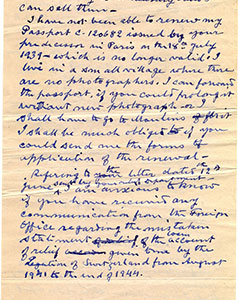 can sell them –
I have not been able to renew my
Passport C. 120682 issued by your
predecessor in Paris on the 18th July
1939 – which is no longer valid. I
live in a small village where there
are no photographers. I can forward
the passport, if you could prolong it
without new photograph – or I
shall have to go to Moulins first
I shall be much obliged if you
could send me the forms of
application of the renewal –
Refering to letter dated 12th
June I am anxious to know
if you have received any
communication from the Foreign
Office regarding the mistaken
statement of the account
of relief given me by the
Legation of Switzerland from August
1941 to the end of 1944.